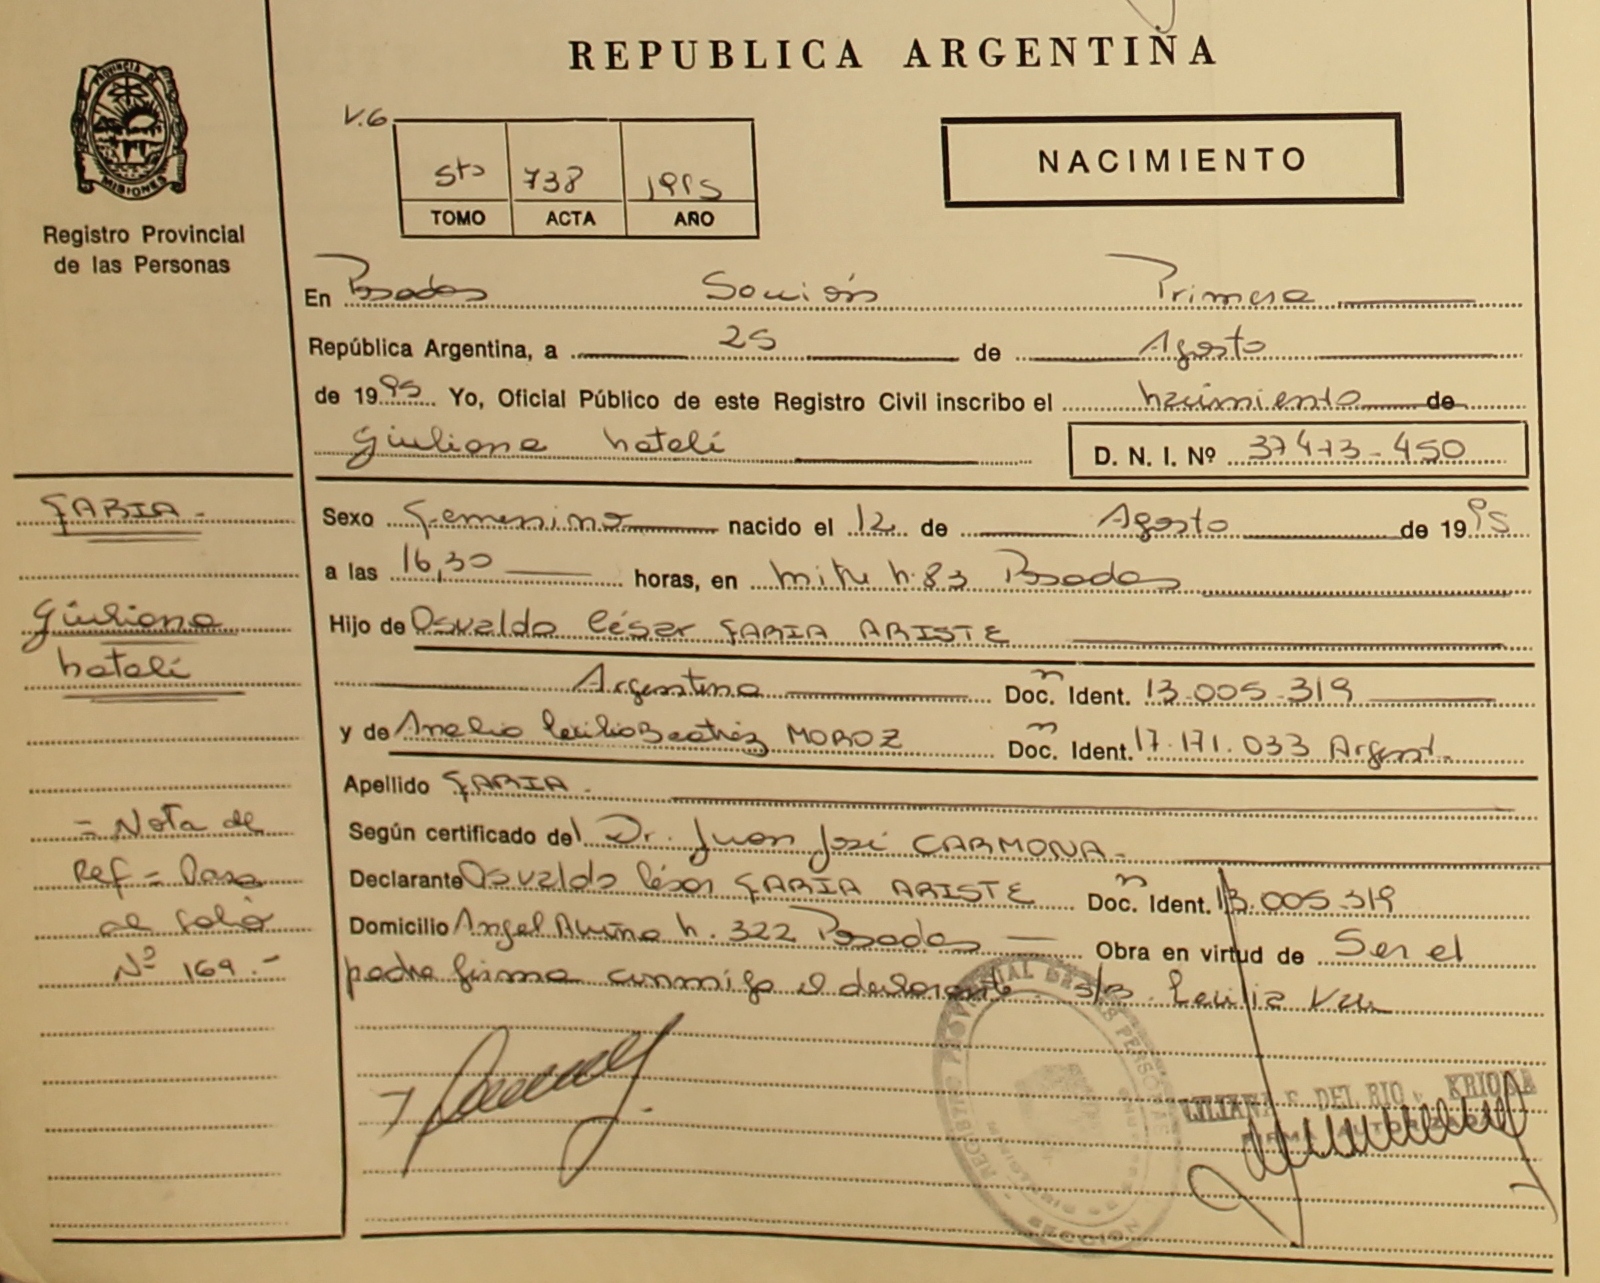 REPUBLICA ARGENTINA
PROVINCIA DE
MISIONES
Registro Provincial
de las Personas
V.6
5to 738 1995
TOMO ACTA AÑO
NACIMIENTO
En Posadas Sección Primera
República Argentina, a 25 de Agosto
de 1995 Yo, Oficial Público de este Registro Civil inscribo el nacimiento de
Giuliana Natalí D. N. I. Nº 37473-450
FARIA -
Giuliana
Natalí
Sexo Femenino nacido el 12 de Agosto de 1995
a las 16,30 horas, en Mitre N. 83 Posadas
Hijo de Osvaldo César FARIA ARISTE
Argentina Doc. Ident. 13.005.319
y de Analia Cecilia Beatriz MOROZ Doc. Ident. 17.171.033 Argent.
Apellido FARIA.
Según certificado del Dr. Juan José CARMONA -
Declarante Osvaldo César FARIA ARISTE Doc. Ident. 13.005.319
Domicilio Angel Acuña N. 322 Posadas Obra en virtud de Ser el
padre firma conmigo el declarante
= Nota de
Ref = Pasa
al folio
Nº 169.-
REGISTRO PROVINCIAL DE LAS PERSONAS
SECCION
LILIANA E. DEL RIO
FIRMA AUTORIZADA